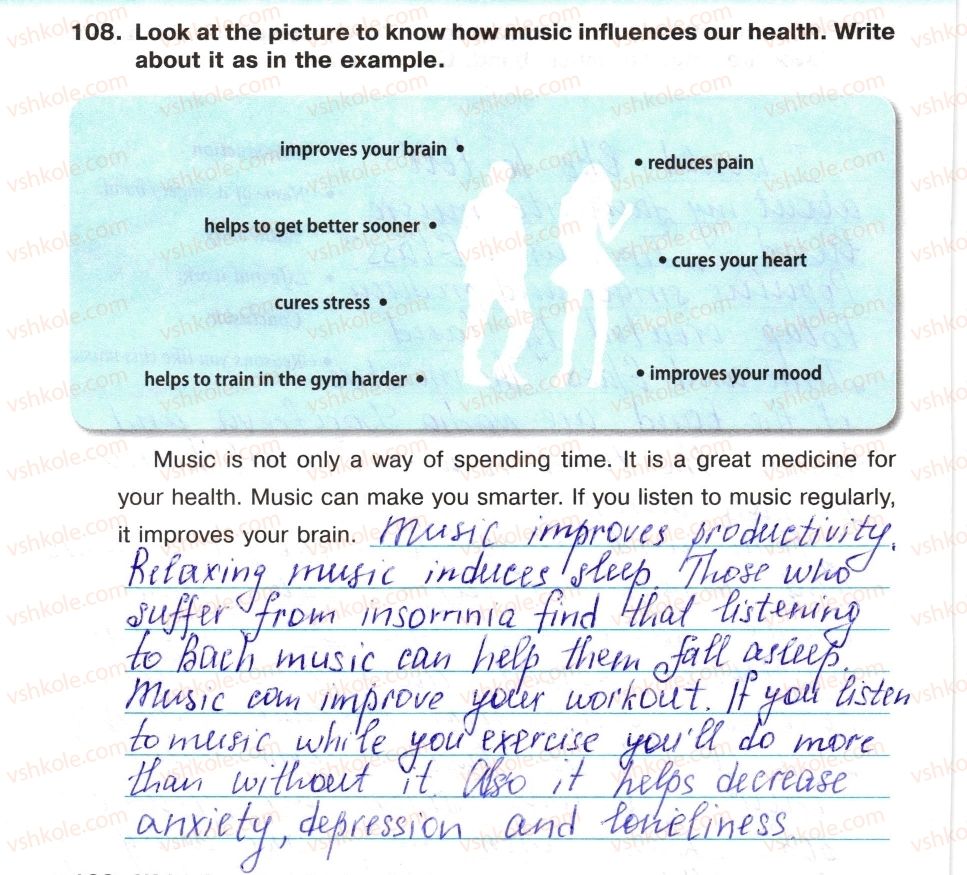 108. Look at the picture to know how music influences our health. Write
about it as in the example.
improves your brain •
• reduces pain
helps to get better sooner •
• cures your heart
cures stress •
helps to train in the gym harder •
• improves your mood
Music is not only a way of spending time. It is a great medicine for
your health. Music can make you smarter. If you listen to music regularly,
it improves your brain. Music improves productivity.
Relaxing music induces sleep. Those who
suffer from insomnia find that listening
to Bach music can help them fall asleep.
Music can improve your workout. If you listen
to music while you exercise you'll do more
than without it. Also it helps decrease
anxiety, depression and loneliness.
vshkole.com